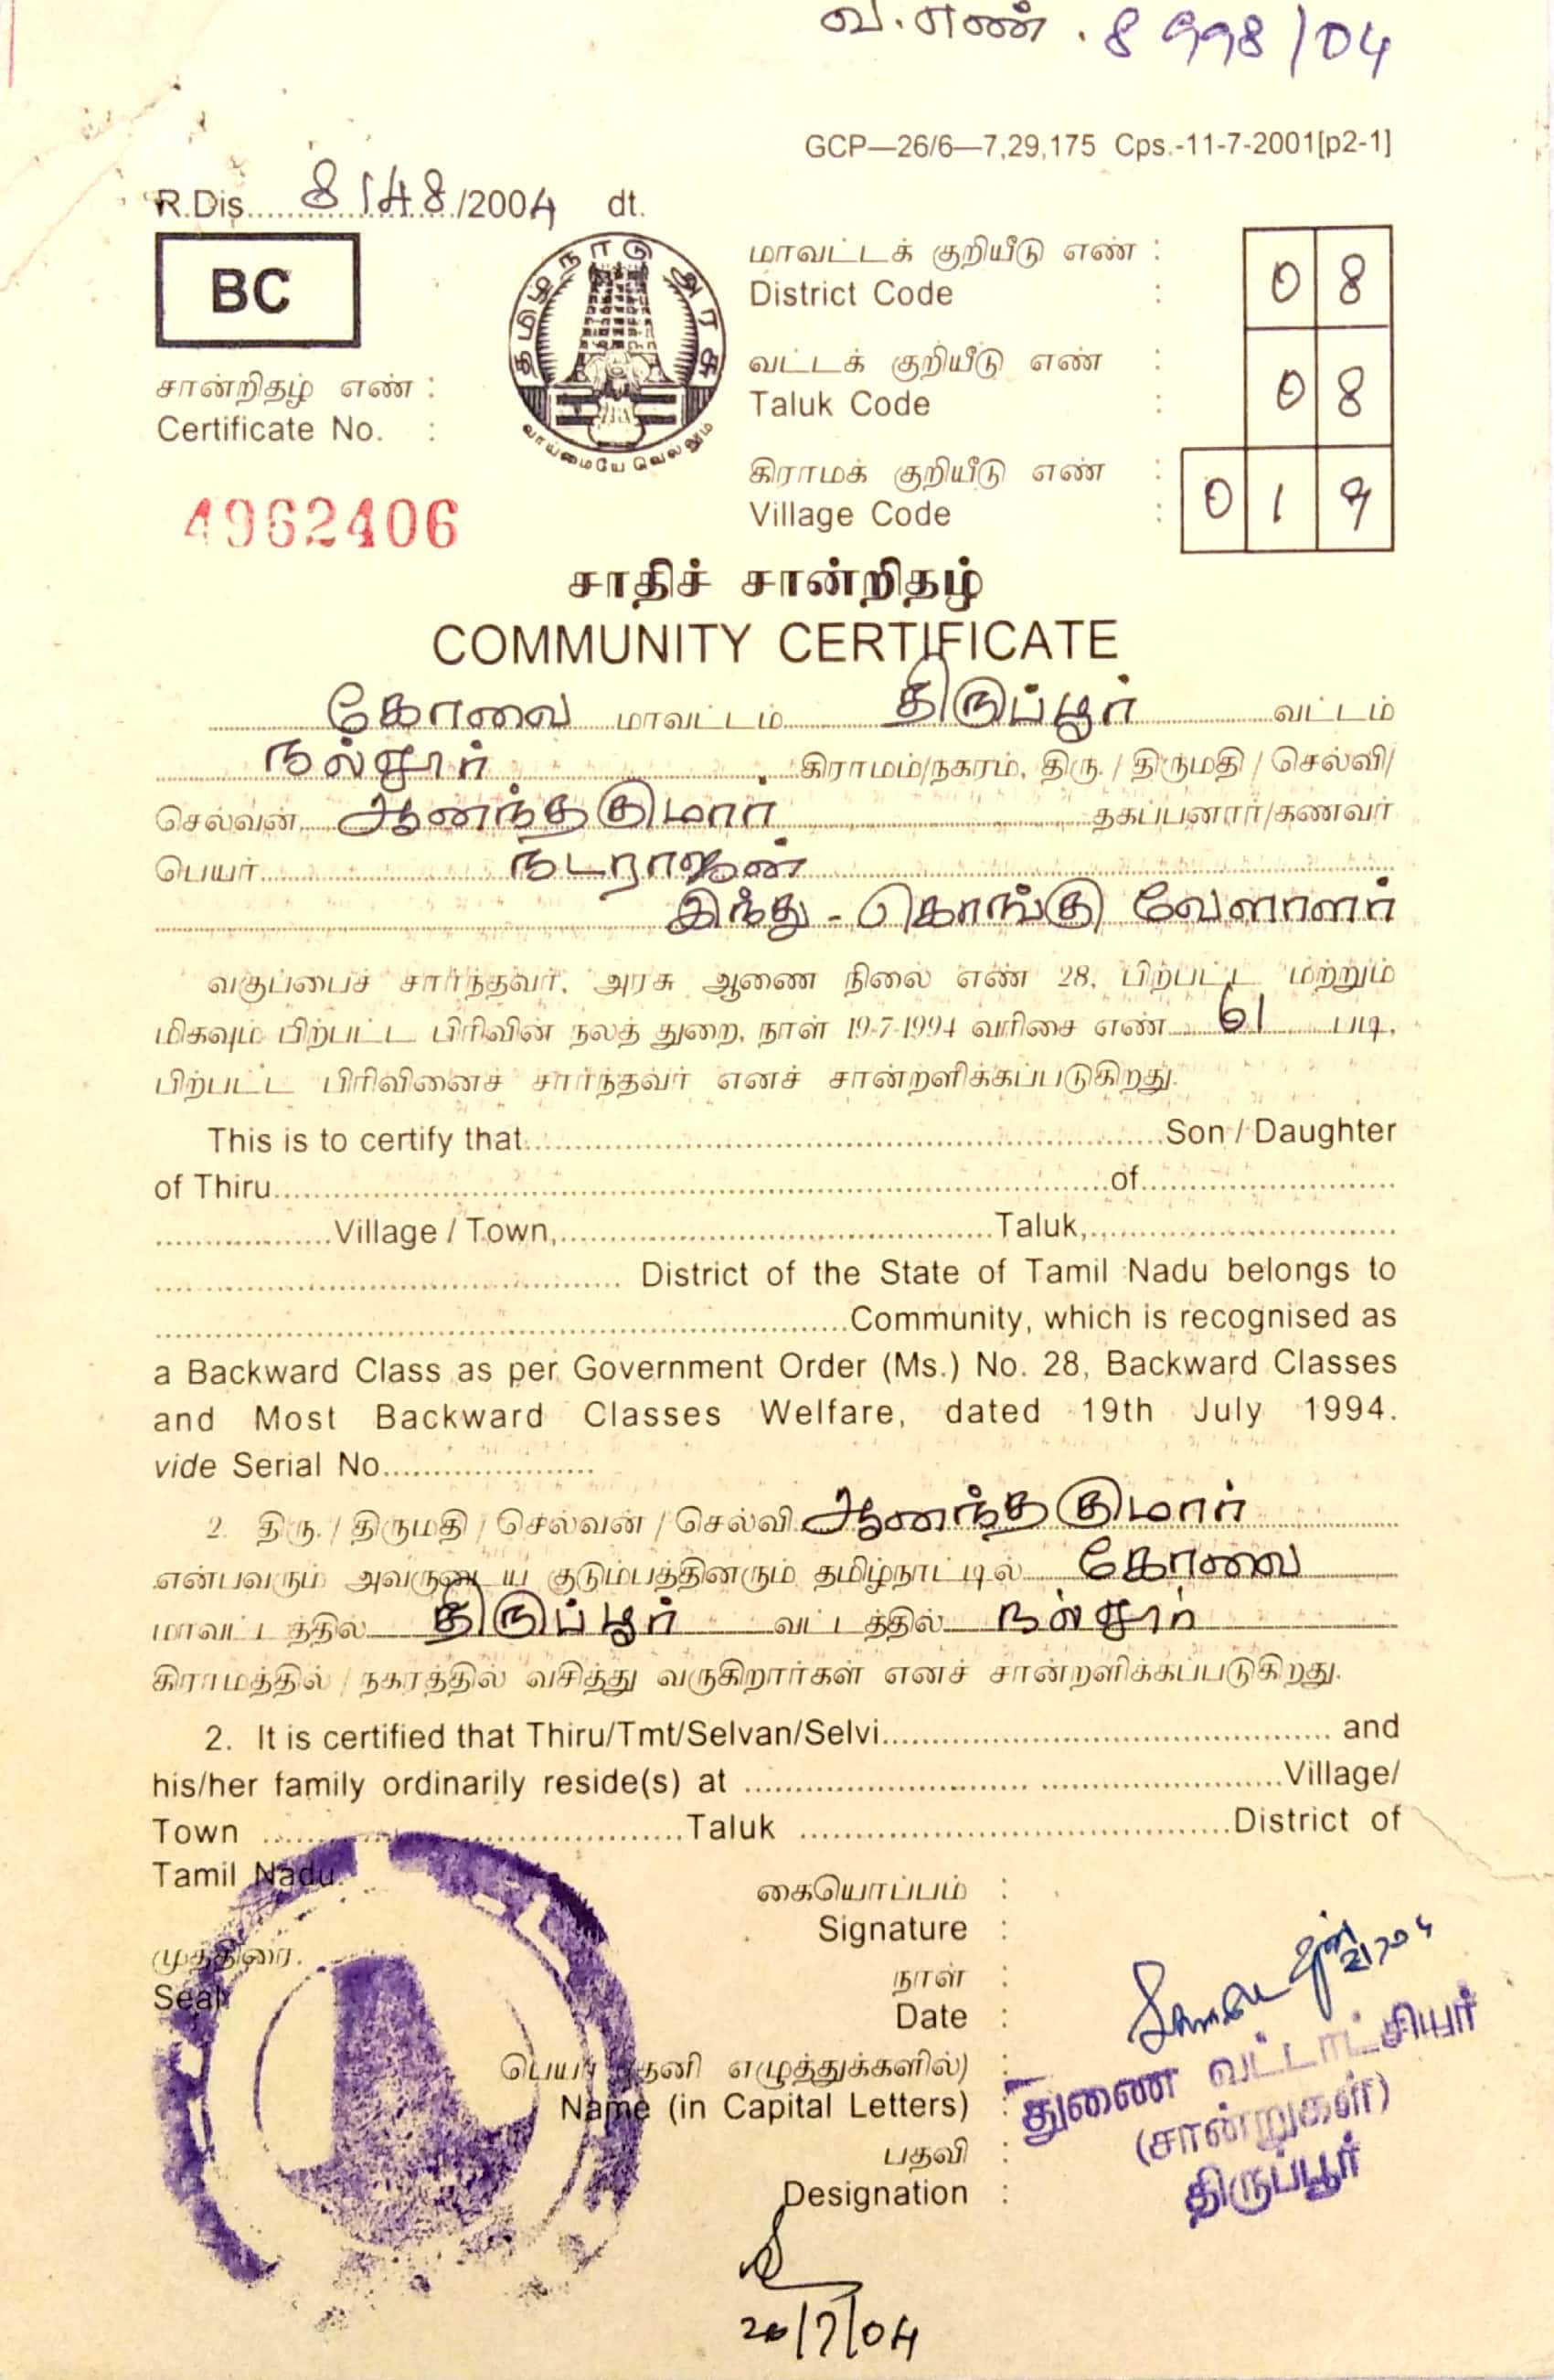 வ.எண். 8998/04
GCP—26/6—7,29,175 Cps.-11-7-2001[p2-1]
R.Dis....8148/2004 dt.
BC
தமிழ்நாடு அரசு
வாய்மையே வெல்லும்
மாவட்டக் குறியீடு எண் :
District Code : 0 8
வட்டக் குறியீடு எண் :
Taluk Code : 0 8
கிராமக் குறியீடு எண் :
Village Code : 0 1 9
சான்றிதழ் எண் :
Certificate No. :
4962406
சாதிச் சான்றிதழ்
COMMUNITY CERTIFICATE
கோவை மாவட்டம் திருப்பூர் வட்டம்
நல்லூர் கிராமம்/நகரம், திரு. / திருமதி / செல்வி/
செல்வன் ஆனந்தகுமார் தகப்பனார்/கணவர்
பெயர் நடராஜன்
இந்து - கொங்கு வேளாளர்
வகுப்பைச் சார்ந்தவர். அரசு ஆணை நிலை எண் 28, பிற்பட்ட மற்றும்
மிகவும் பிற்பட்ட பிரிவின் நலத் துறை, நாள் 19-7-1994 வரிசை எண் 61 படி,
பிற்பட்ட பிரிவினைச் சார்ந்தவர் எனச் சான்றளிக்கப்படுகிறது.
This is to certify that..........Son / Daughter
of Thiru..........of..........
..........Village / Town,..........Taluk,..........
.......... District of the State of Tamil Nadu belongs to
..........Community, which is recognised as
a Backward Class as per Government Order (Ms.) No. 28, Backward Classes
and Most Backward Classes Welfare, dated 19th July 1994.
vide Serial No..........
2. திரு. / திருமதி / செல்வன் / செல்வி ஆனந்தகுமார்
என்பவரும் அவருடைய குடும்பத்தினரும் தமிழ்நாட்டில் கோவை
மாவட்டத்தில் திருப்பூர் வட்டத்தில் நல்லூர்
கிராமத்தில் / நகரத்தில் வசித்து வருகிறார்கள் எனச் சான்றளிக்கப்படுகிறது.
2. It is certified that Thiru/Tmt/Selvan/Selvi.......... and
his/her family ordinarily reside(s) at ..........Village/
Town ..........Taluk ..........District of
Tamil Nadu.
கையொப்பம் :
Signature :
முத்திரை.
Seal
நாள் :
Date :
பெயர் (தனி எழுத்துக்களில்) :
Name (in Capital Letters) :
பதவி :
Designation :
துணை வட்டாட்சியர்
(சான்றுகள்)
திருப்பூர்
20/7/04